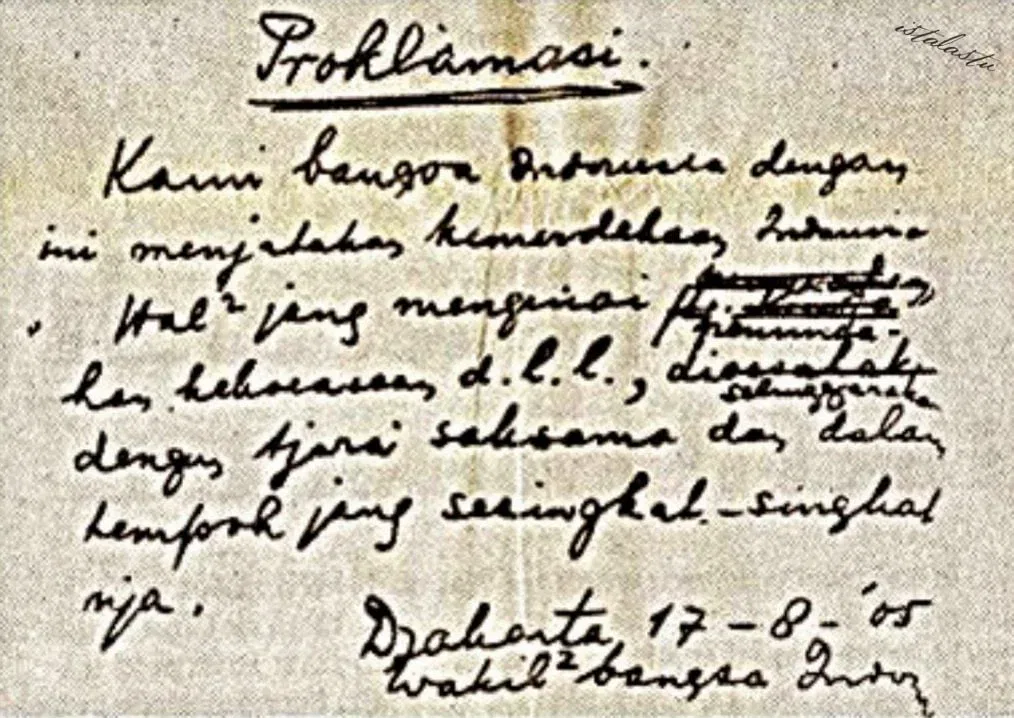 Proklamasi.
istalastu
Kami bangsa Indonesia dengan
ini menjatakan kemerdekaan Indonesia
. Hal² jang mengenai
peminda-
han kekoeasaan d.l.l., dioesahak
selenggarakan
dengan tjara saksama dan dalam
tempoh jang sesingkat-singkat
nja.
Djakarta, 17 - 8 - '05
Wakil² bangsa Indon